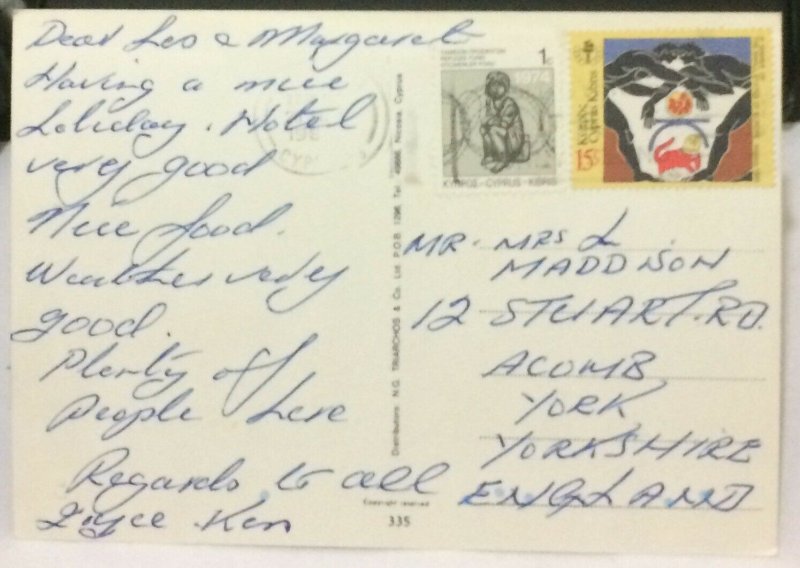 Dear Les & Margaret
Having a nice
holiday. Hotel
very good
Nice food.
Weather very
good.
Plenty of
People here
Regards to all
Joyce . Ken
1c
1974
ΚΥΠΡΟΣ-CYPRUS-KIBRIS
ΚΥΠΡΟΣ
Cyprus Kıbrıs
15c
MR. MRS L.
MADDISON
12 STUART. RD.
ACOMB
YORK
YORKSHIRE
ENGLAND
Distributors: N.G. TRIARCHOS & Co. Ltd P.O.B. 1296, Tel. Nicosia, Cyprus
Copyright reserved
335